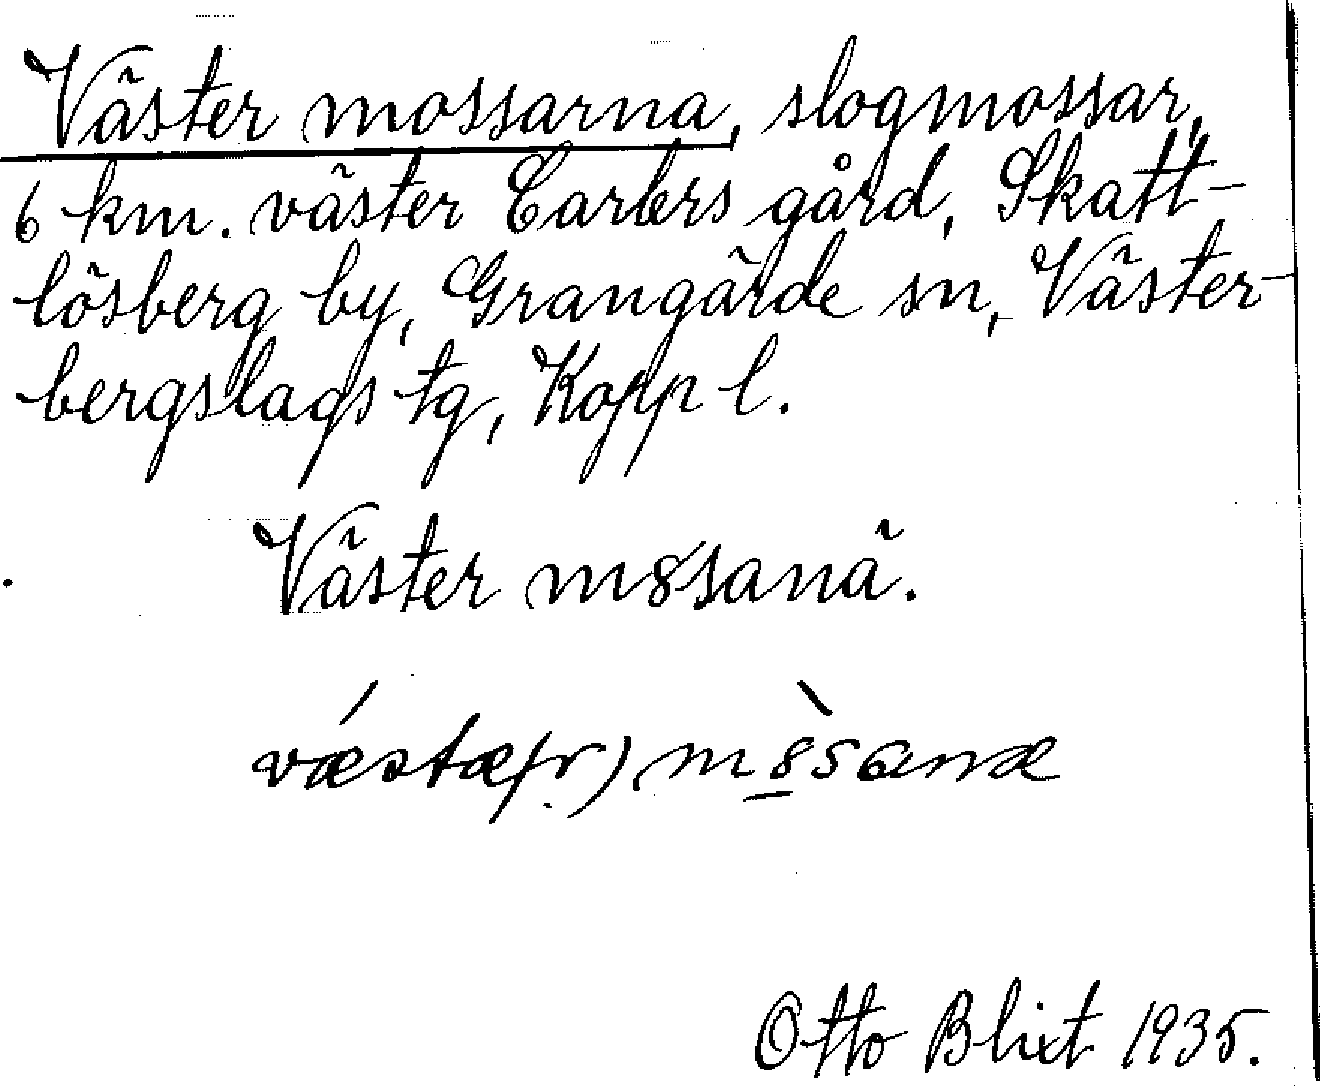 Väster mossarna, slogmossar,
6 km. väster Carlers gård, Skatt-
lösberg by, Grangärde sn, Väster-
bergslags tg, Kopp l.
Väster m8sanä.
vǽstæ(r) m8̀sanæ
Otto Blixt 1935.